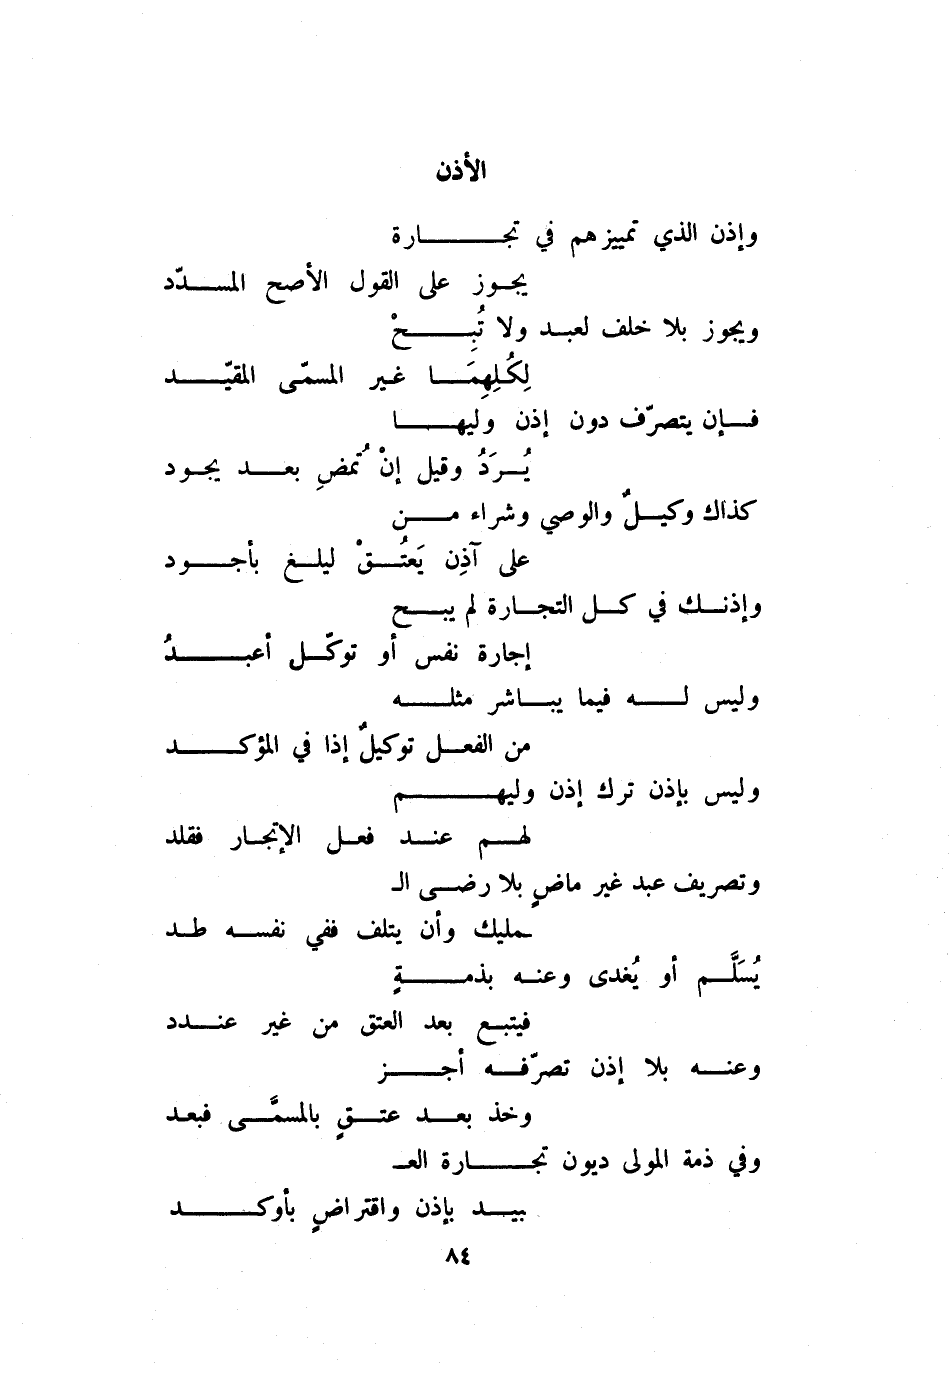 الأذن
وإذن الذي تمييزهم في تجارة
يجوز على القول الأصح المسدّد
ويجوز بلا خلف لعبد ولا تُبِحْ
لِكُلِهِمَا غير المسمّى المقيّد
فإن يتصرّف دون إذن وليها
يُرَدُ وقيل إنْ تُمضِ بعد يجود
كذاك وكيلٌ والوصي وشراء من
على آذِن يَعتُقْ ليلغ بأجود
وإذنك في كل التجارة لم يبح
إجارة نفس أو توكّل أعبدُ
وليس له فيما يباشر مثله
من الفعل توكيلٌ إذا في المؤكد
وليس بإذن ترك إذن وليهم
لهم عند فعل الإتجار فقلد
وتصريف عبد غير ماضٍ بلا رضى الـ
ـمليك وأن يتلف ففي نفسه طد
يُسَلَّم أو يُغدى وعنه بذمةٍ
فيتبع بعد العتق من غير عندد
وعنه بلا إذن تصرّفه أجز
وخذ بعد عتقٍ بالمسمَّى فبعد
وفي ذمة المولى ديون تجارة العـ
بيد بإذن واقتراضٍ بأوكد
٨٤